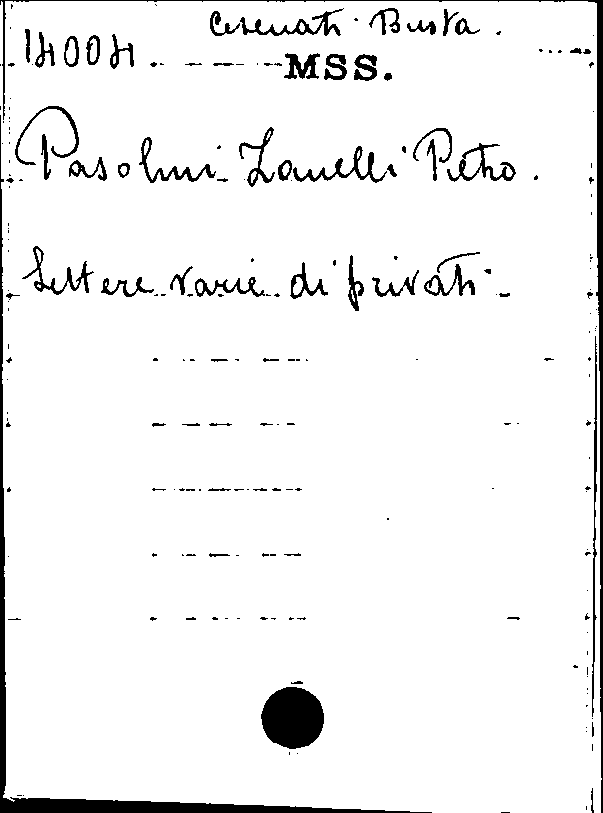 Cesenati Busta.
14004. MSS.
Pasolini-Zanelli Pietro.
Lettere varie di privati-